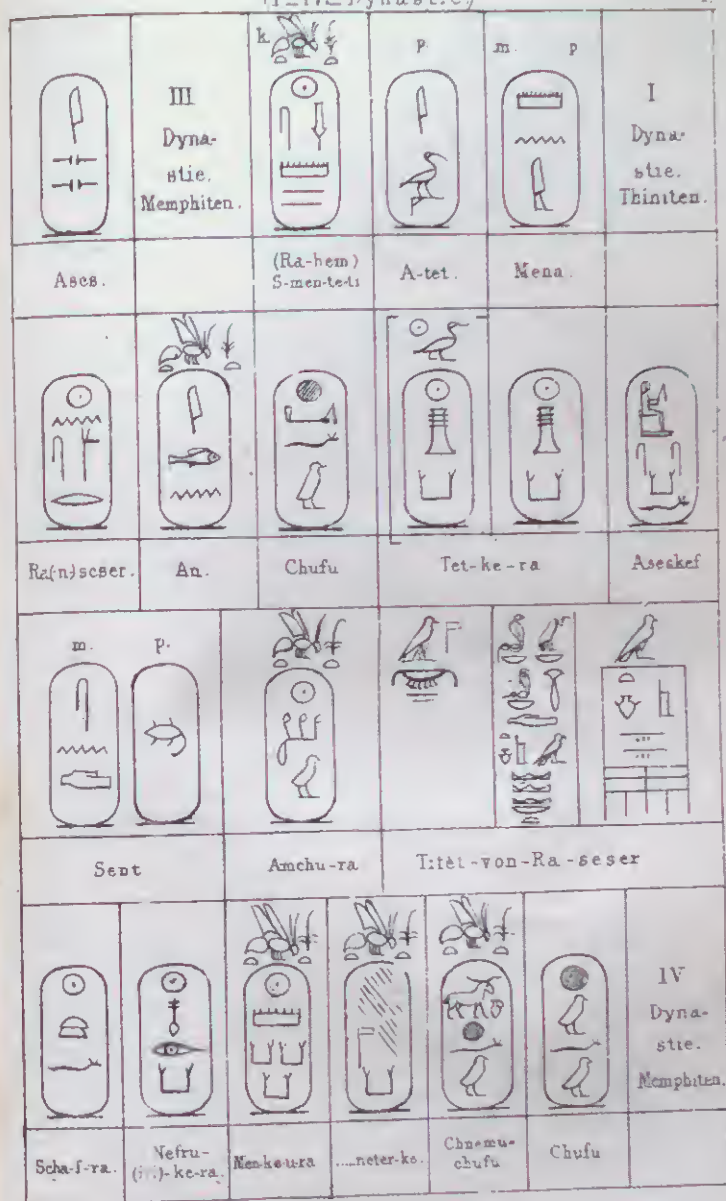 (I–IV– Dynastie)
k. p. m. p
III
Dyna-
stie.
Memphiten.
I
Dyna-
stie.
Thiniten.
Ases.
(Ra-hem)
S-men-te-ti
A-tet.
Mena.
Ra(n)seser.
An.
Chufu
Tet-ke-ra
Aseskef
m. p.
Sent
Amchu-ra
Titel-von-Ra-seser
IV
Dyna-
stie.
Memphiten.
Scha-f-ra.
Nefru-
-ke-ra.
Men-ke-u-ra
....neter-ke.
Chnemu-
chufu
Chufu